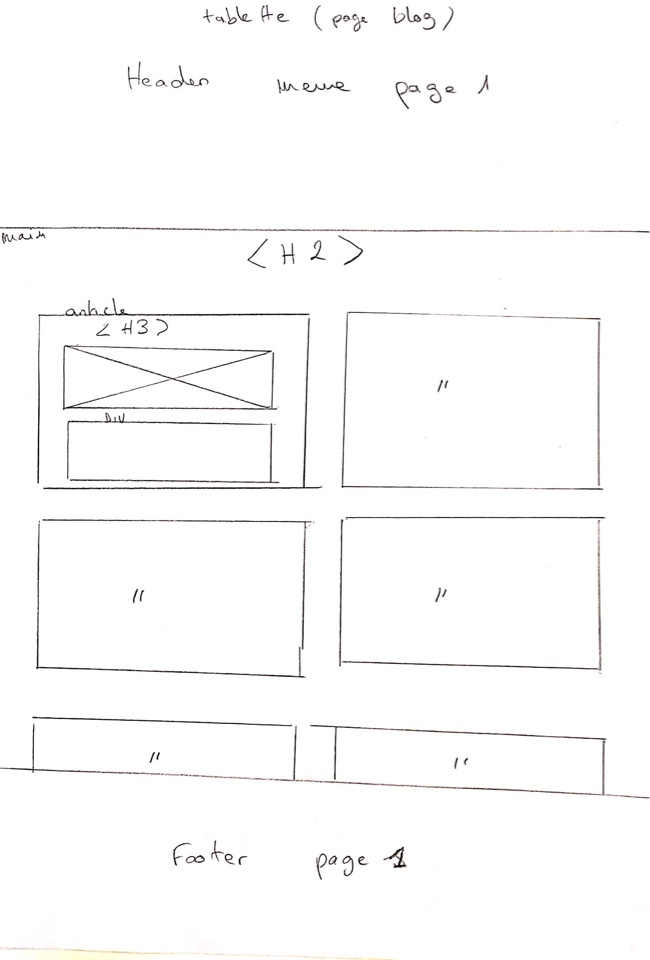 tablette (page blog)
Header meme page 1
main
<H2>
article
<H3>
"
DIV
"
"
"
"
Footer page 1